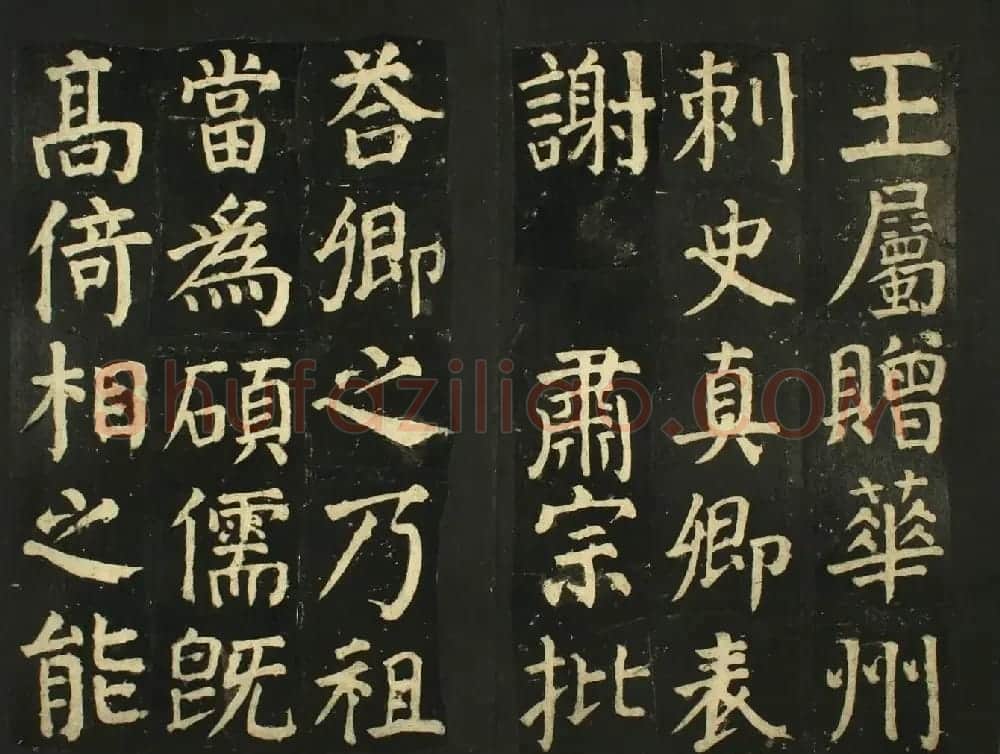 王屬贈華州
刺史真卿表
謝 肅宗批
荅卿之乃祖
當爲碩儒旣
髙倚相之能
shufaziliao.COM